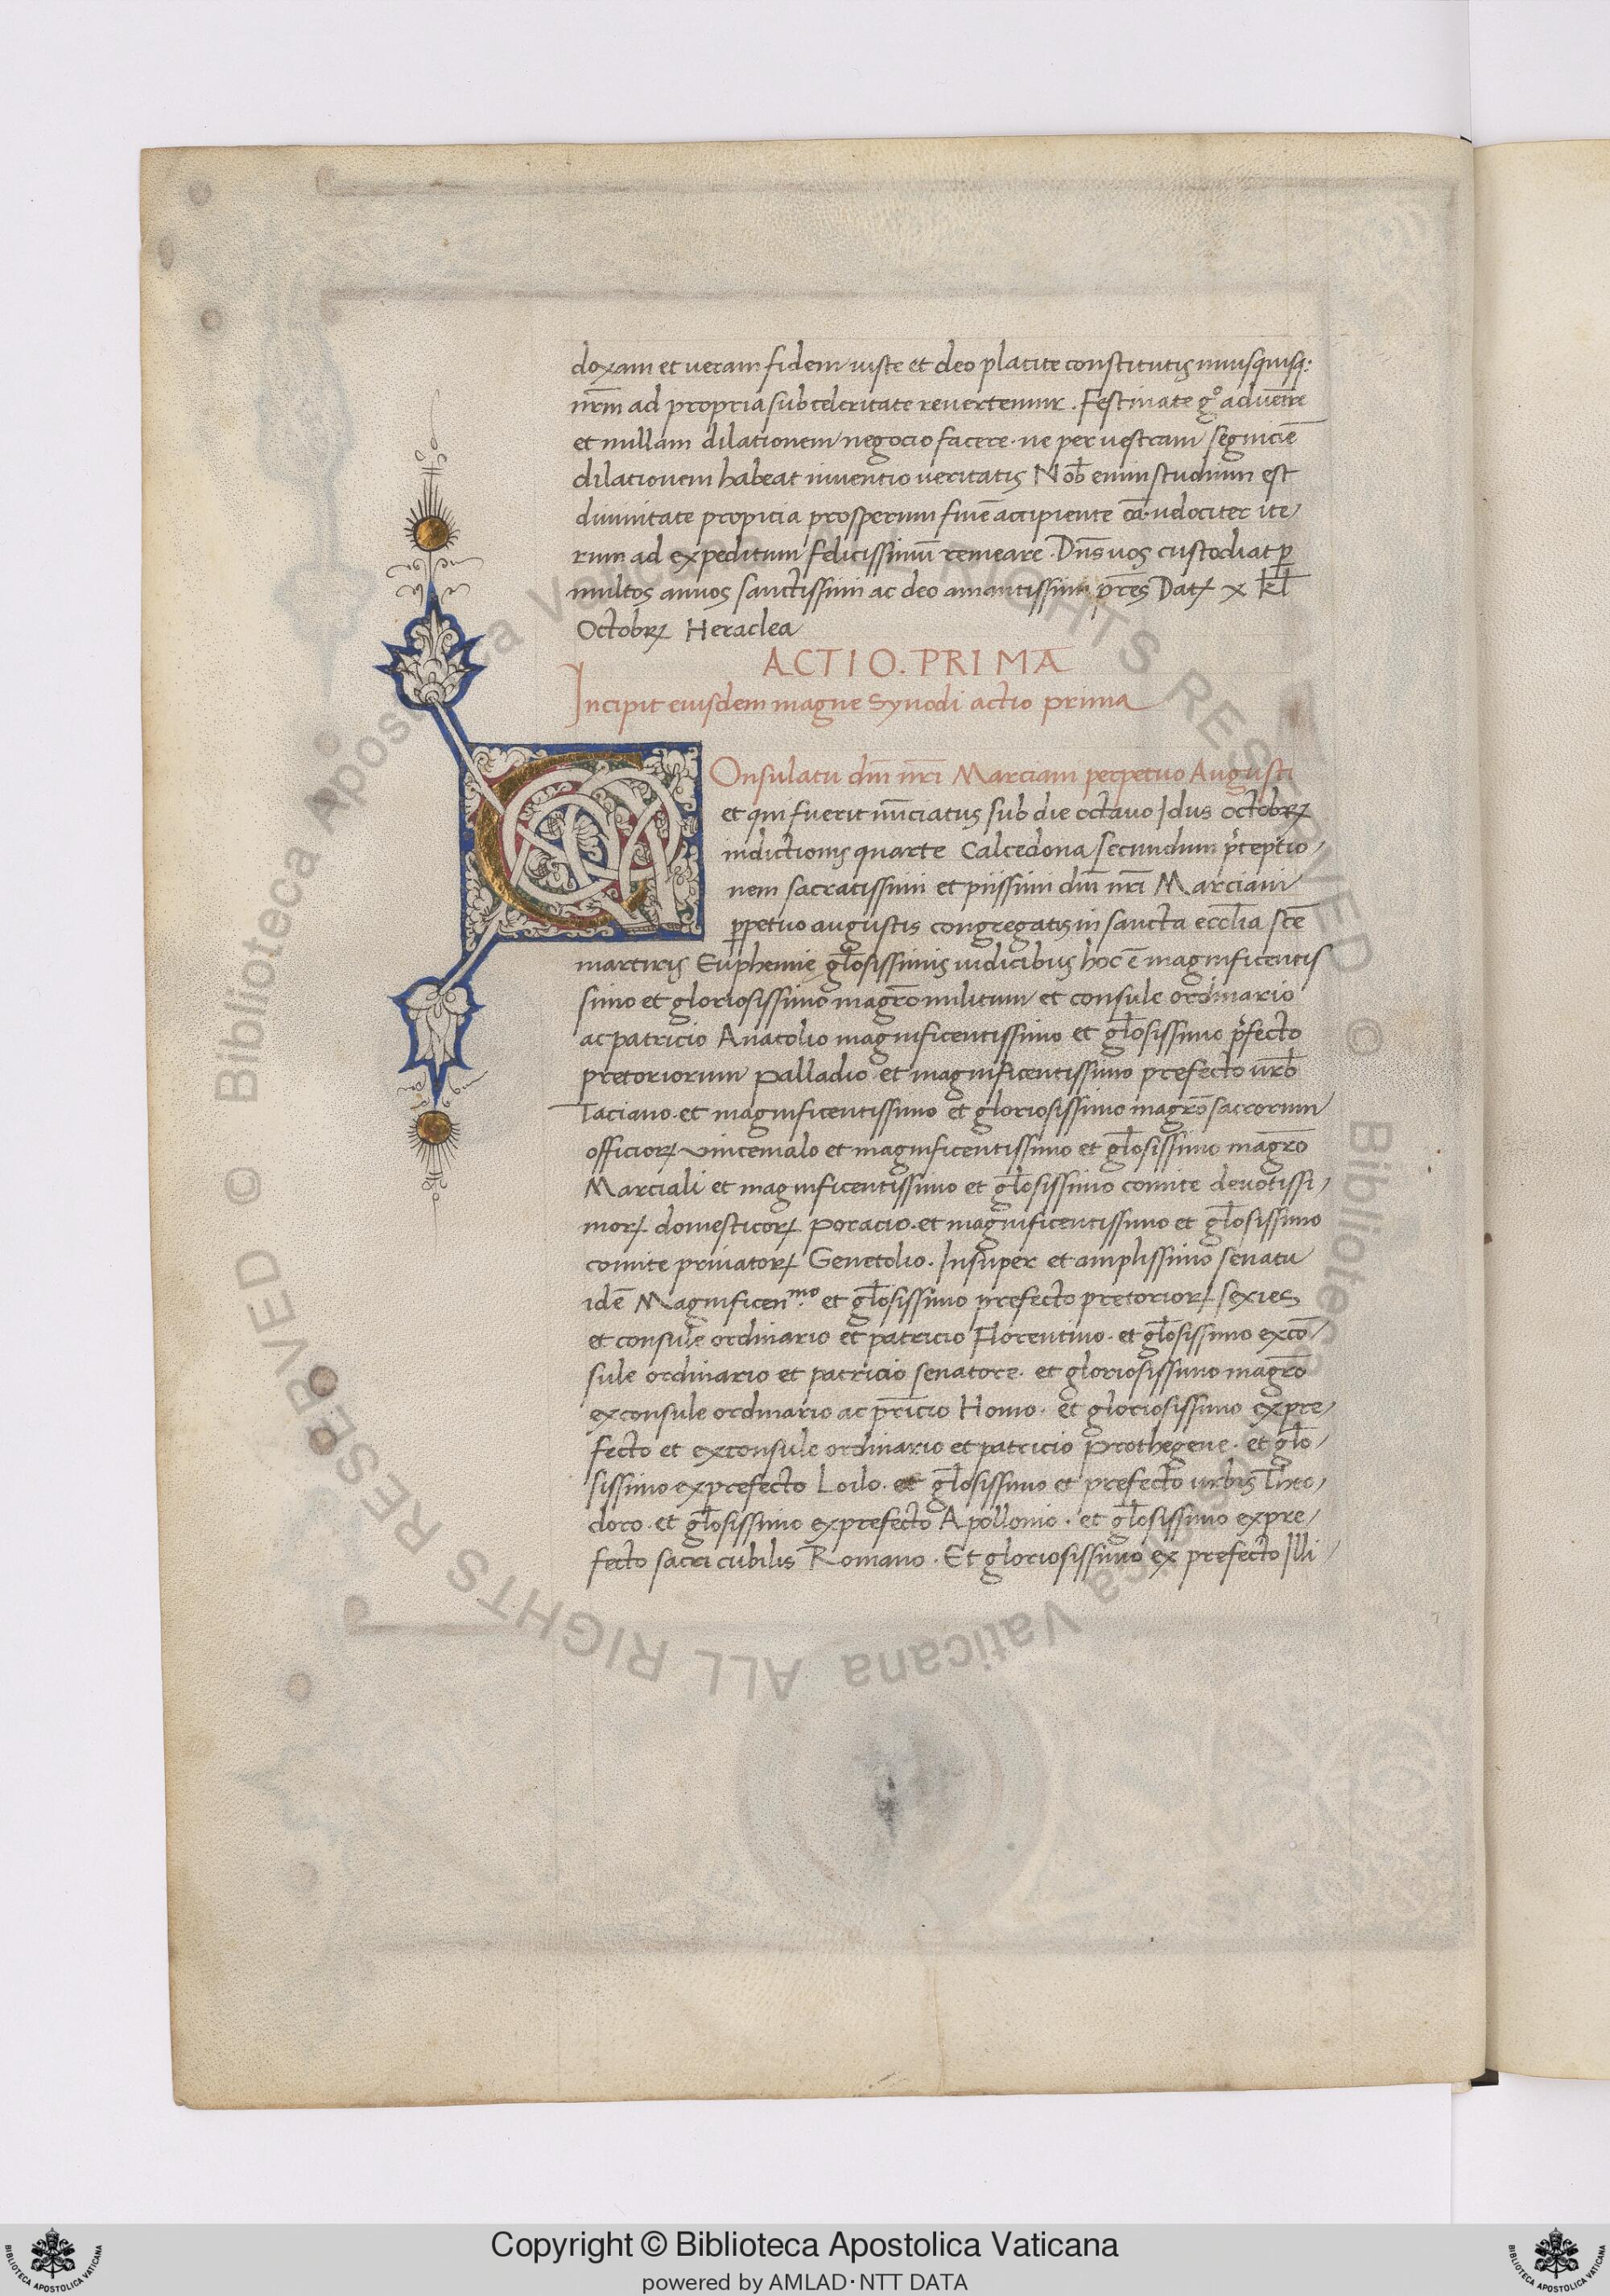 doxam et ueram fidem iuste et deo placite constitutis unusquisq:
nrm̄ ad propria sub celeritate reuertemur. Festinate g° aduenire
et nullam dilationem negocio facere. ne per uestram segniciē
dilationem habeat inuentio ueritatis Nob̄ enim studium est
diuinitate propicia prosperum finē accipiente cā. uelociter ite/
rum ad expeditum felicissimū remeare. Dn̄s uos custodiat ꝑ
multos annos sanctissimi ac deo amantissimi pr̄es Datꝝ x kl̄
Octobrꝝ Heraclea
ACTIO. PRIMA
Incipit eiusdem magne synodi actio prima
COnsulatu dn̄i nr̄i Marciani perpetuo Augusti
et qui fuerit nūciatus sub die octauo Idus octobrꝝ
indictionis quarte Calcedona secundum p̄ceptio/
nem sacratissimi et piissimi dn̄i nr̄i Marciani
ꝑpetuo augustis congregatis in sancta eccl̄ia scē
martiris Euphemie gl̄osissimis iudicibus hoc ē magnificentis
simo et gloriosissimo magr̄o militum et consule ordinario
ac patricio Anatolio magnificentissimo et gl̄osissimo p̄fecto
pretoriorum palladio et magnificentissimo prefecto urb̄
Taciano. et magnificentissimo et gloriosissimo magr̄o sacrorum
officioꝝ vincemalo et magnificentissimo et gl̄osissimo magr̄o
Marciali et magnificentissimo et gl̄osissimo comite deuotissi/
moꝝ domesticoꝝ poracio. et magnificentissimo et gl̄osissimo
comite priuatoꝝ Genetolio. Insuper et amplissimo senatu
idē Magnificen.mo et gl̄osissimo prefecto pretorioꝝ sexies
et consule ordinario et patricio Florentino. et gl̄osissimo excō/
sule ordinario et patricio senatore. et gloriosissimo magr̄o
exconsule ordinario ac pr̄icio Homo. et gloriosissimo expre/
fecto et exconsule ordinario et patricio prothegene. et gl̄o/
sissimo exprefecto Loilo. et gl̄osissimo et prefecto urbis Theo/
doro. et gl̄osissimo exprefecto Apollonio. et gl̄osissimo expre/
fecto sacri cubilis Romano. Et gloriosissimo ex prefecto Illi/
© Biblioteca Apostolica Vaticana ALL RIGHTS RESERVED © Biblioteca Apostolica Vaticana ALL RIGHTS RESERVED
Copyright © Biblioteca Apostolica Vaticana
powered by AMLAD·NTT DATA
BIBLIOTECA APOSTOLICA VATICANA
BIBLIOTECA APOSTOLICA VATICANA